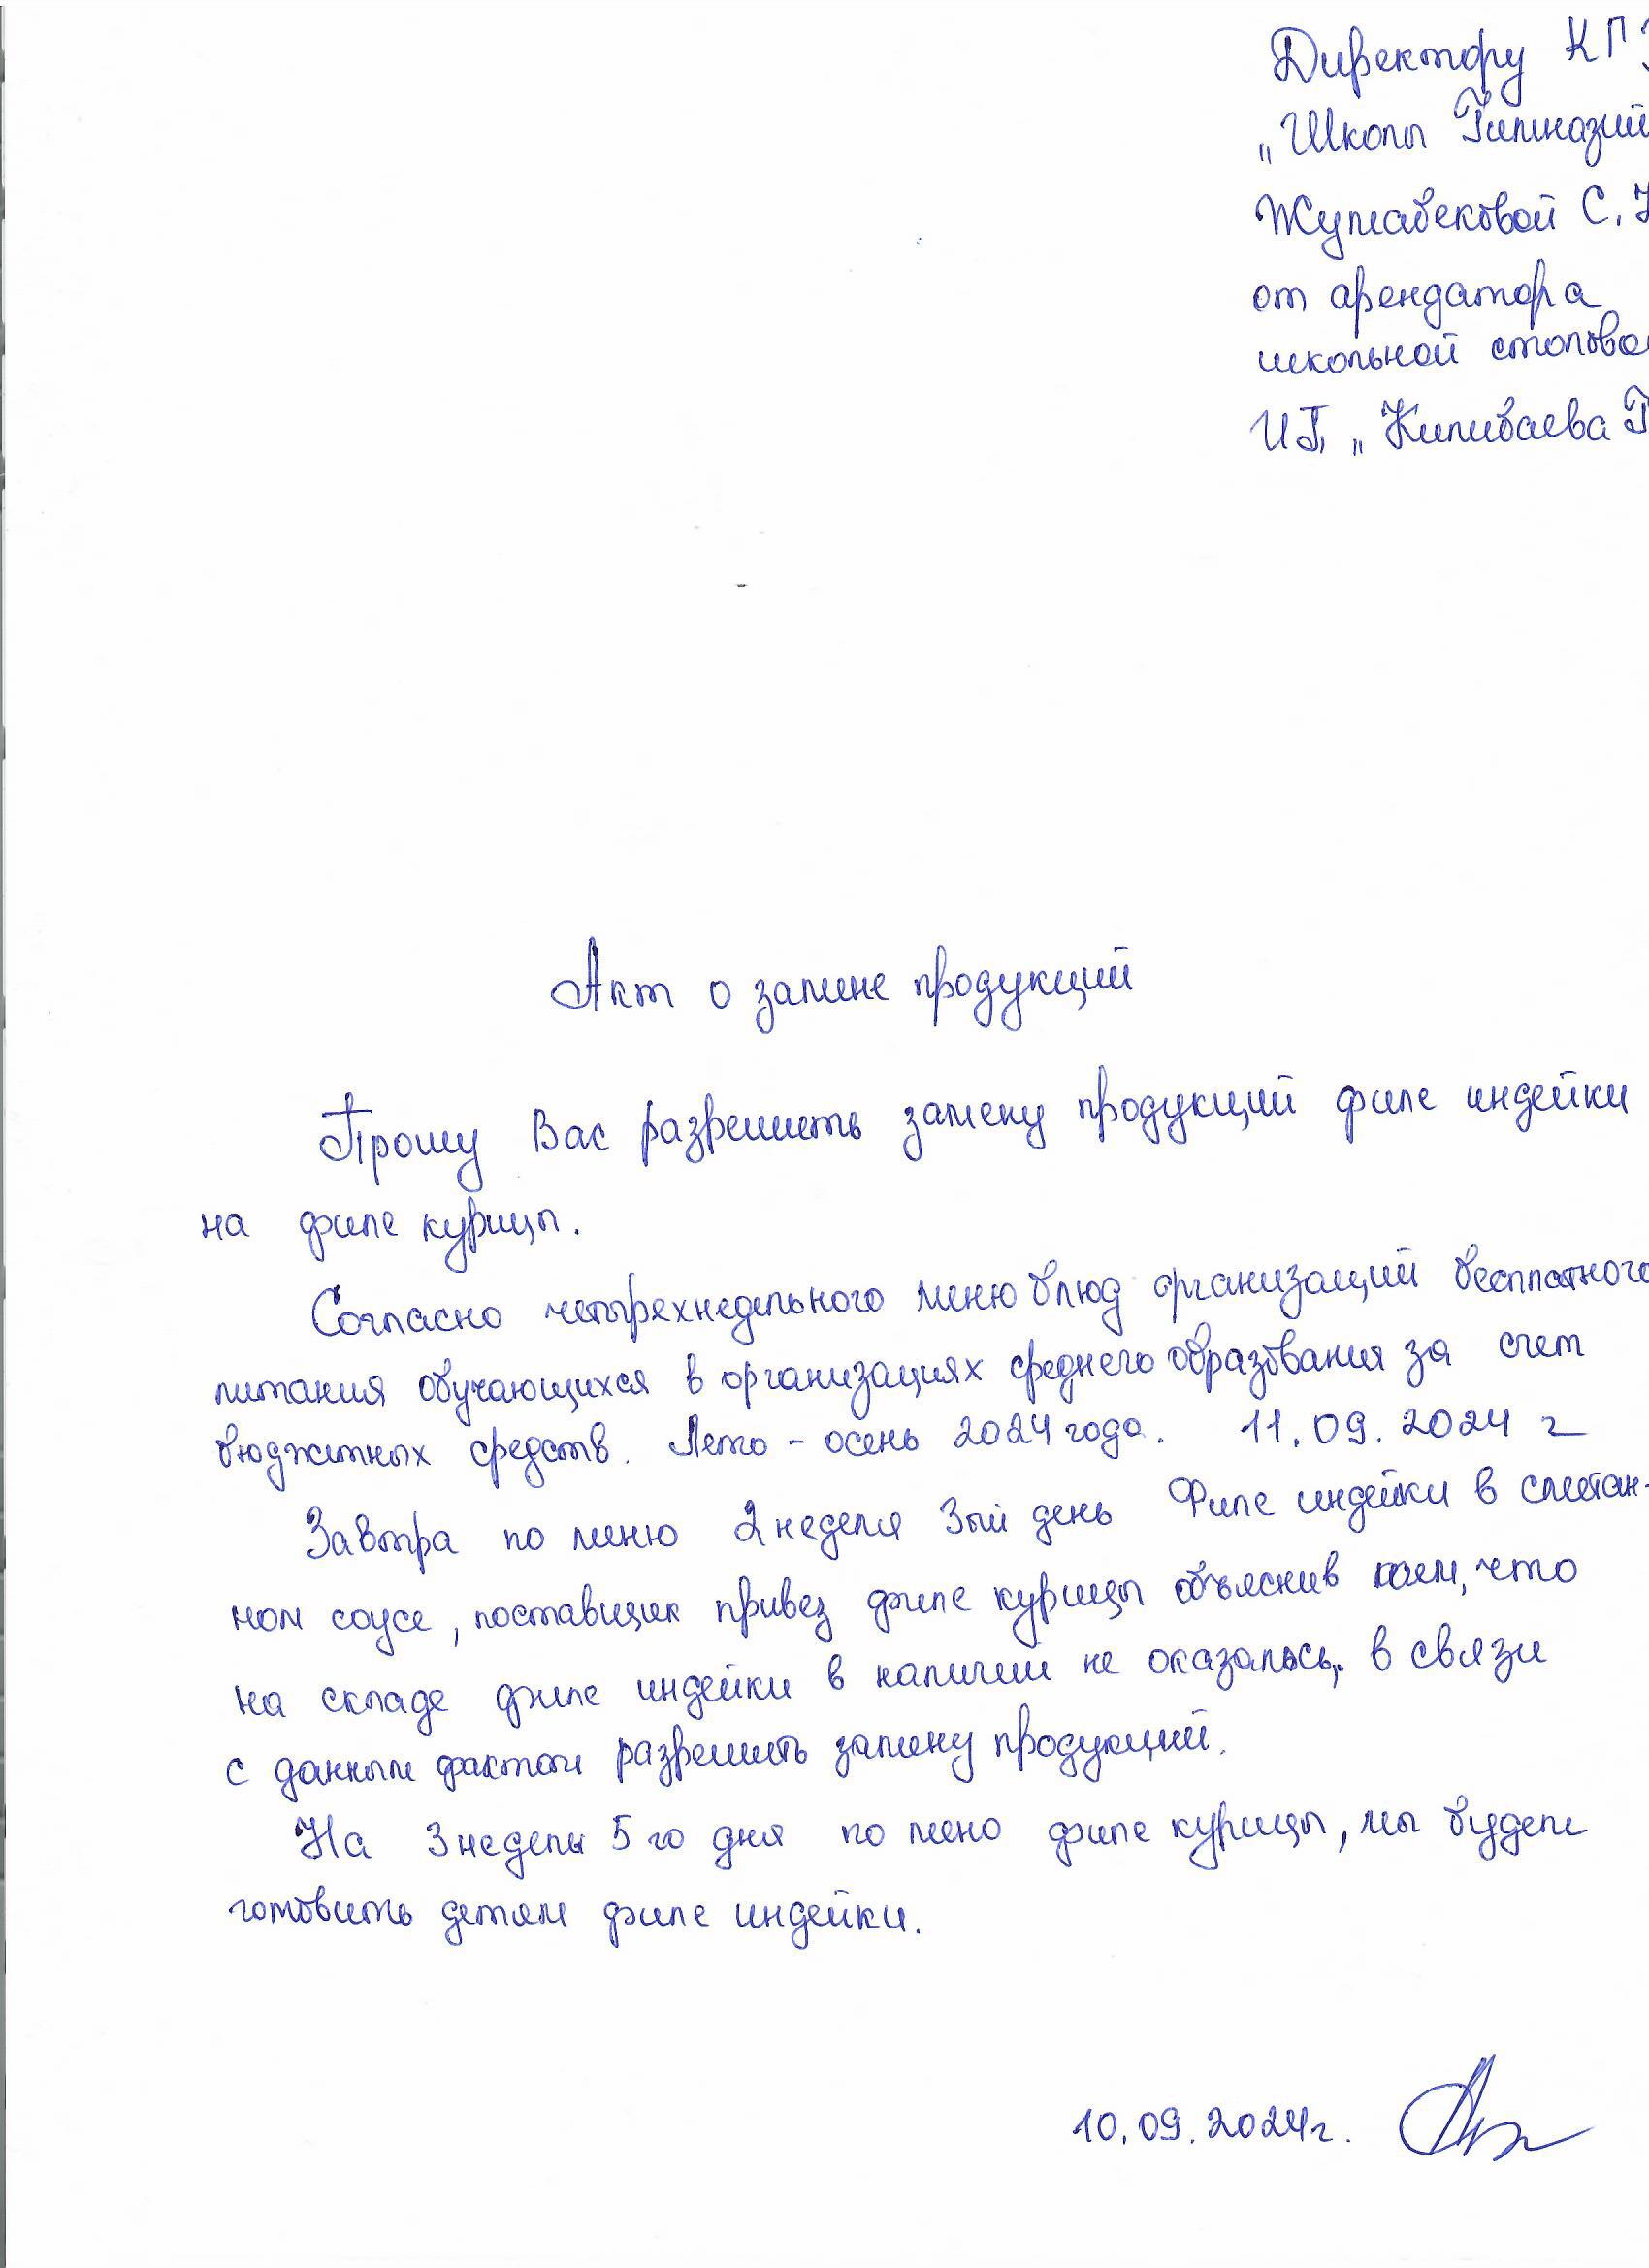 Директору КГ
„Школы Гимназий
Жумабековой С.
от арендатора
школьной столово
ИП „Килибаева Г
Акт о замене продукций
Прошу Вас разрешить замену продукций филе индейки
на филе курицы.
Согласно четырехнедельного меню блюд организаций бесплатного
питания обучающихся в организациях среднего образования за счет
бюджетных средств. Лето - осень 2024 года. 11.09.2024 г
Завтра по меню 2 неделя 3ый день Филе индейки в сметан-
ном соусе, поставщик привез филе курицы объяснив нам, что
на складе филе индейки в наличии не оказалось, в связи
с данным фактом разрешить замену продукций.
На 3 недели 5 го дня по меню филе курицы, мы будем
готовить детям филе индейки.
10.09.2024г.